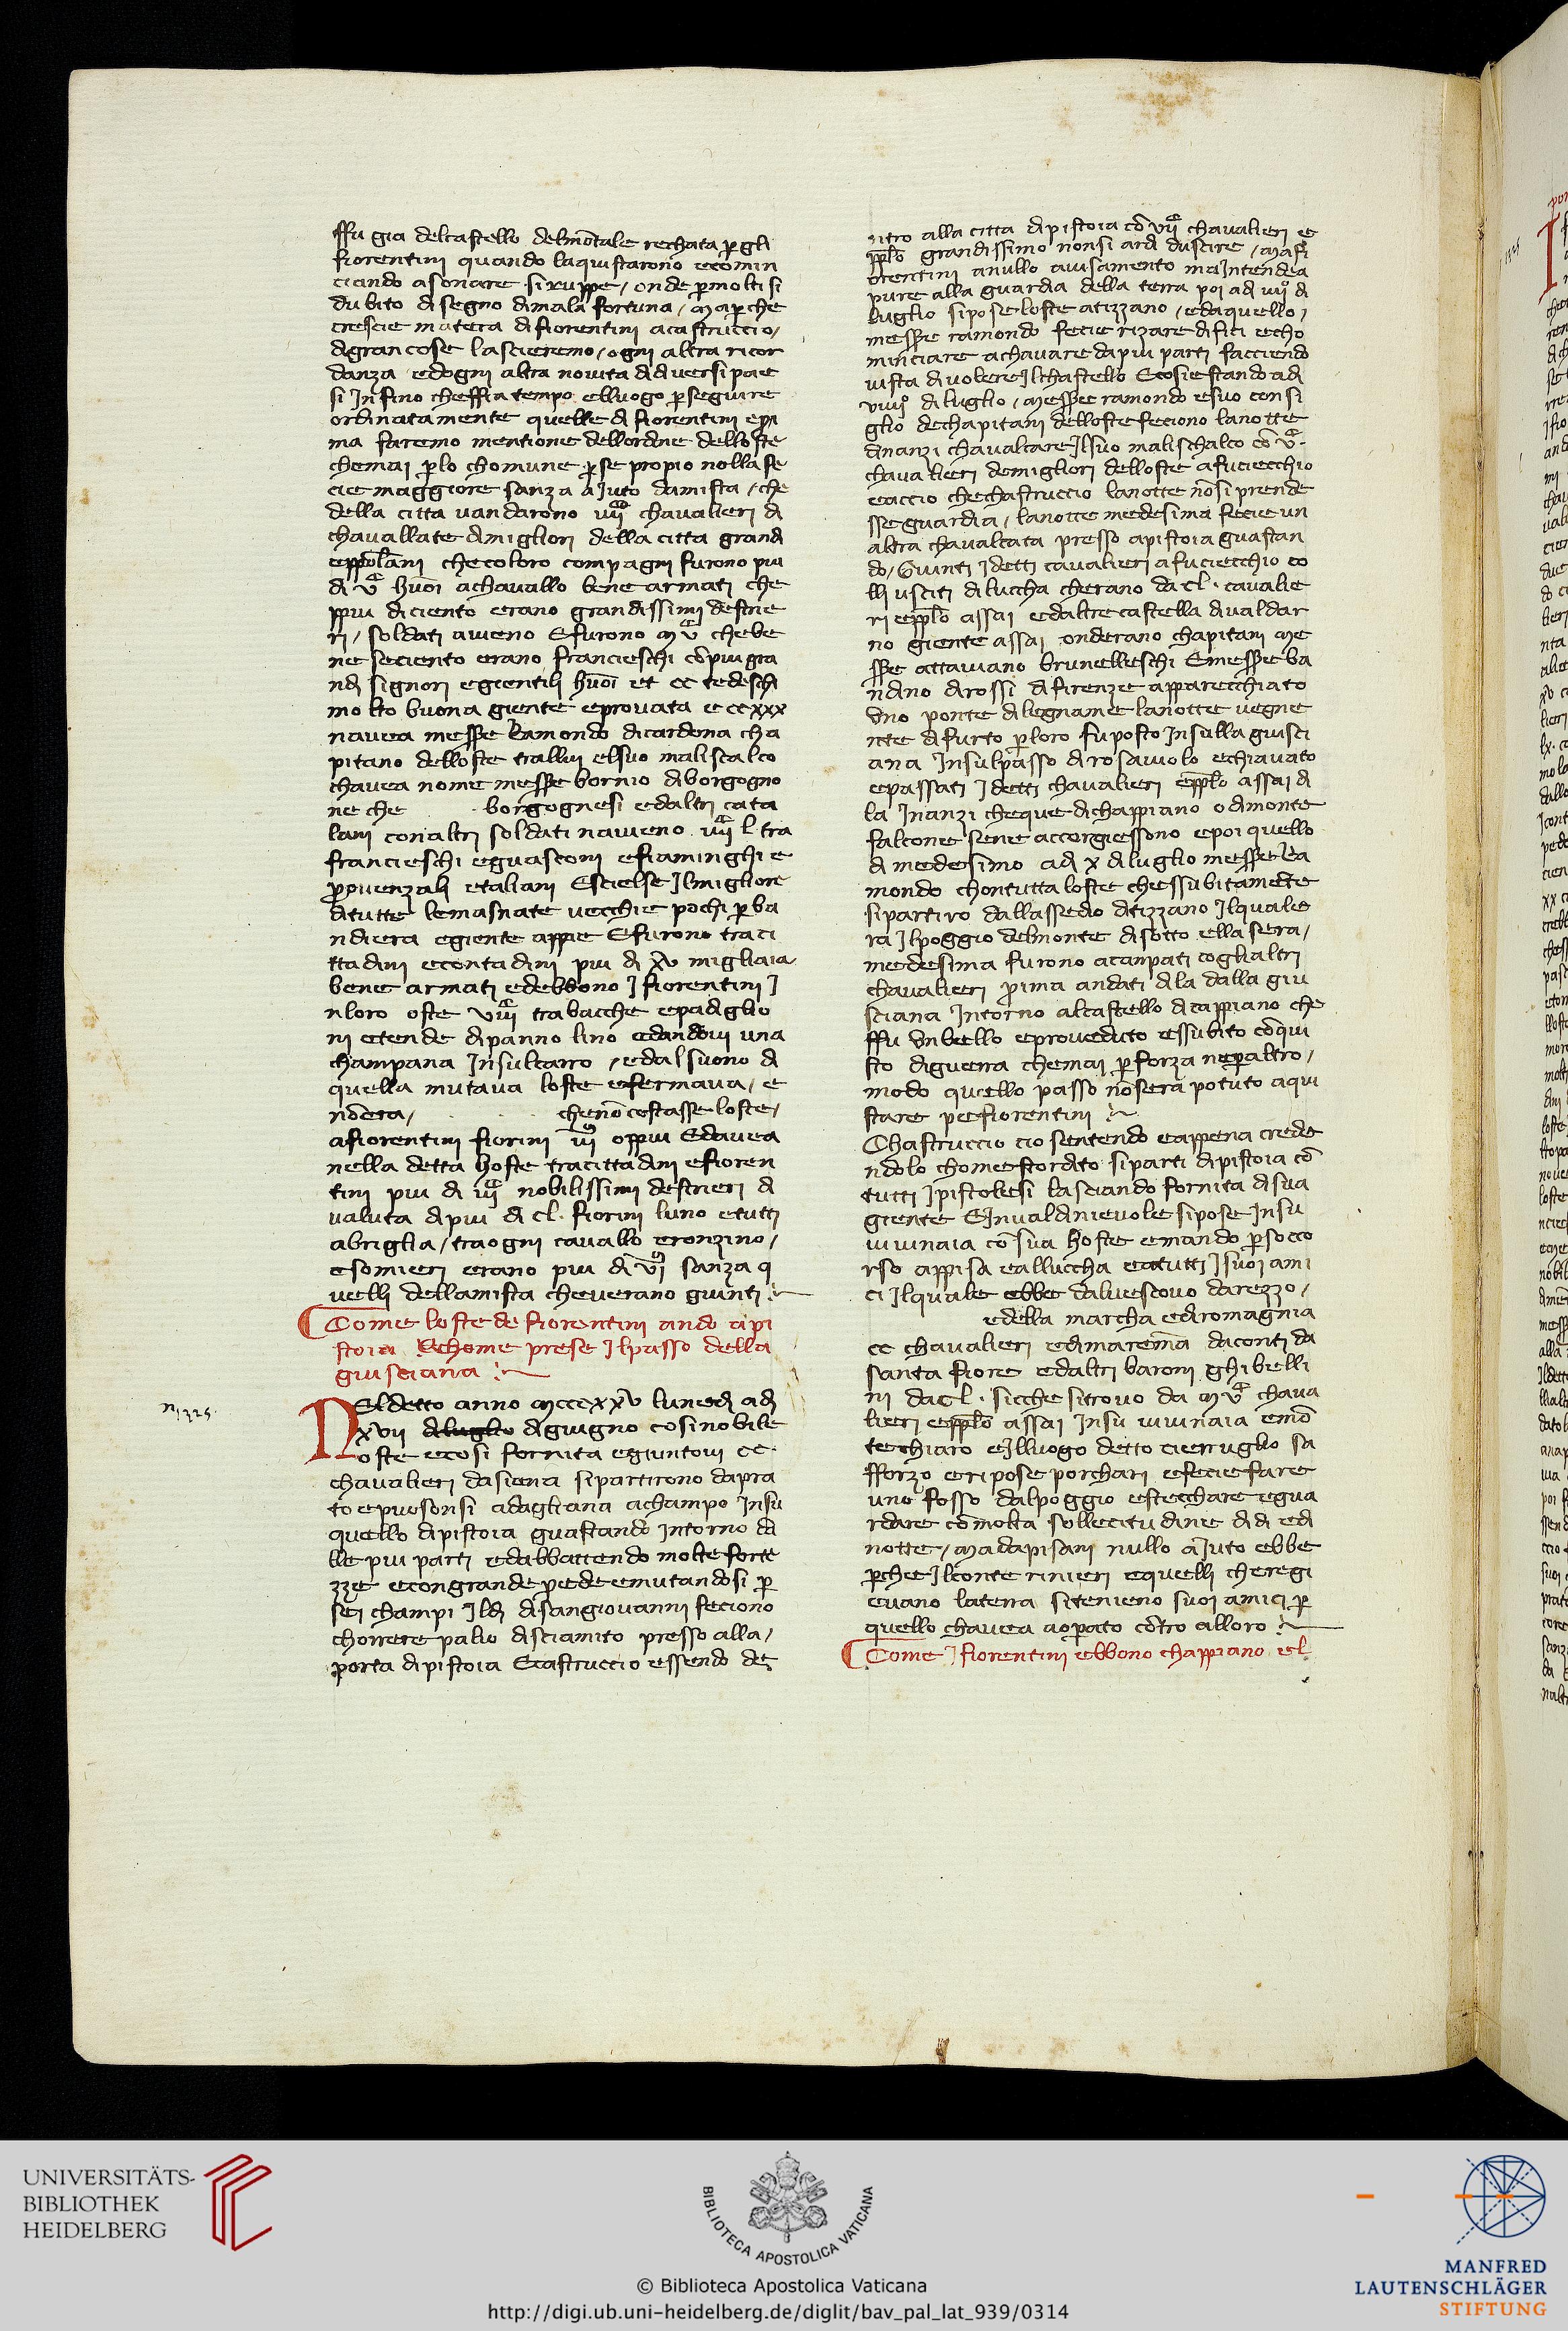 ffu gia delcastello delmōtale rechata p̱gli
fiorentini quando laquistarono ecomin
ciando asonare siruppe / onde p̱molti si
dubito disegno dimala fortuna / map̱che
crescie matera difiorentini acastruccio /
digrancose lascieremo / ogni altra ricor
danza edogni altra novita didiversi pae
si Infino cheffia tempo elluogo p̱seguire
ordinatamente quelle di fiorentini epi
ma faremo mentione dellordine delloste
chemai p̱lo chomune p̱se propio nollafe
cie maggiore sanza aiuto damista / che
della citta vandarono iiii chavalieri di
chavallate dimigliori della citta grandi
eppolani checoloro compagni furono piu
di v̄ huōi achavallo bene armati che
ppiu diciento erano grandissimi destrie
ri / soldati aveno Efurono mv̄ chebe
ne seciento erano francieschi cōpiu gra
ndi signori egientili huōi et cc tedeschi
molto buona giente eprovata e ccxxx
navea messe Ramondo dicardona cha
pitano delloste trallui elsuo maliscalco
chavea nome messe bornio diborgogno
ne che borgognesi edaltri cata
lani conaltri soldati naveno iiii l tra
francieschi eguasconi efiaminghi e
provenzali etaliani Escielse Ilmigliore
ditutte lemasnate vecchie pochi p̱ba
ndiera egiente appie Efurono traci
ttadini econtadini piu di xv migliaia
bene armati edebbono I fiorentini I
nloro oste viii trabacche epadiglio
ni etende dipanno lino edandovi una
champana Insulcarro / edalsuono di
quella mutava loste efermava / e
nōdera / chenō costasse loste /
afiorentini fiorini iii oppiu Edavea
nella detta hoste tracittadini efioren
tini piu di iii nobilissimi destrieri di
valuta dipiu di cl. fiorini luno etutti
abriglia / traogni cavallo eronzino /
esomieri erano piu di vi sanza q
uelli dellamista cheverano giunti
Come loste de fiorentini ando api
stoia Echome prese Ilpasso della
giusciana
n 1325.
NEldetto anno mcccxxv lunedi adi
xvii diluglio digiugno cosinobile
oste ecosi fornita egiuntovi cc
chavalieri dasiena sipartirono dapra
to epuosonsi adagliana achampo Insu
quello dipistoia guastando Intorno da
lle piu parti edabbattendo molte forte
zze econgrande p̱ede emutandosi p̱
sei champi Ildi disangiovanni feciono
chorrere palio disciamito presso alla /
porta dipistoia Ecastruccio essendo de
ntro alla citta dipistoia cō vii chavalieri e
pplo grandissimo nonsi ardi duscire / mafi
orentini anullo avisamento maIntendea
pure alla guardia della terra poi adi iiii di
luglio sipose loste atizzano / edaquello /
messe ramondo fecie rizare difici echo
minciare achavare dapiu parti facciendo
vista divolere Ilchastello Ecosiestando adi
viiii diluglio / messer ramondo esuo consi
glio dechapitani delloste feciono lanotte
dinanzi chavalcare Ilsuo malischalco cō v̄
chavalieri demigliori delloste afuciecchio
eaccio chechastruccio lanotte nōsi prende
sse guardia / lanotte medesima fecie un
altra chavalcata presso apistoia guastan
do / Giunti I detti cavalieri afuciecchio co
lli usciti diluccha cherano da cl. cavalie
ri epplo assai edaltre castella divaldar
no giente assai onderano chapitani me
sse attaviano brunelleschi Emesse ba
ndino drossi difirenze apparecchiato
Uno ponte dilegname lanotte vegne
nte difurto p̱loro fuposto Insulla giusci
ana Insulpasso dirosaiuolo echiavato
epassati I detti chavalieri epplo assai di
la Inanzi cheque dichappiano odimonte
falcone sene accorgiessono epoi quello
di medesimo adi x diluglio messe Ra
mondo chontutta loste chessubitamēte
sipartiro dallassedio ditizzano Ilquale
ra Ilpoggio delmonte disotto ella sera /
medesima furono acanpati cogli altri
chavalieri prima andati dila dalla giu
sciana Intorno alcastello dicappiano che
ffu Unbello eproveduto essubito cōqui
sto diguerra chemai p̱forza nep̱altro /
modo quello passo nōsera potuto aqui
stare pefiorentini
Chastruccio cio sentendo eappena crede
ndolo chomestordito siparti dipistoia cō
tutti I pistolesi lasciando fornita disua
giente EInvaldinievole sipose Insu
vivinaia cō sua hoste emando p̱socco
rso appisa ealluccha eatutti I suoi ami
ci Ilquale ebbe dalvescovo darezzo /
edella marcha ediromagnia
cc chavalieri edimarēma daconti da
santa fiore edaltri baroni ghibelli
ni dacl. sicche sitrovo da mv̄ chava
lieri epplo assai Insu vivinaia emō
techiaro eIlluogo detto cierruglio sa
fforzo eripose porchari efeciefare
uno fosso dalpoggio estecchare egua
rdare cōmolta sollecitudine didi edi
notte / madapisani nullo aiuto ebbe
p̱che Ilconte rinieri equelli cheregi
evano laterra sitenieno suoi amici p̱
quello chavea aop̱ato cōtro alloro
Come I fiorentini ebbono chappiano el
UNIVERSITÄTS-
BIBLIOTHEK
HEIDELBERG
BIBLIOTECA APOSTOLICA VATICANA
© Biblioteca Apostolica Vaticana
http://digi.ub.uni-heidelberg.de/diglit/bav_pal_lat_939/0314
MANFRED
LAUTENSCHLÄGER
STIFTUNG